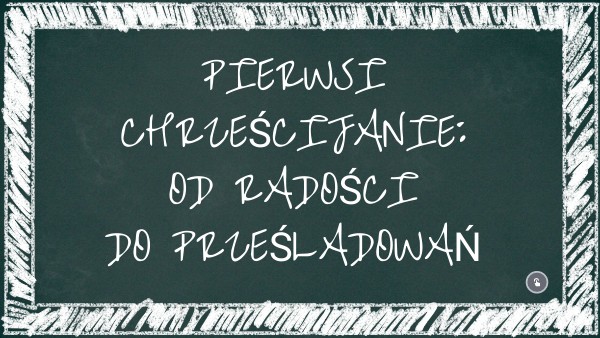 PIERWSI
CHRZEŚCIJANIE:
OD RADOŚCI
DO PRZEŚLADOWAŃ